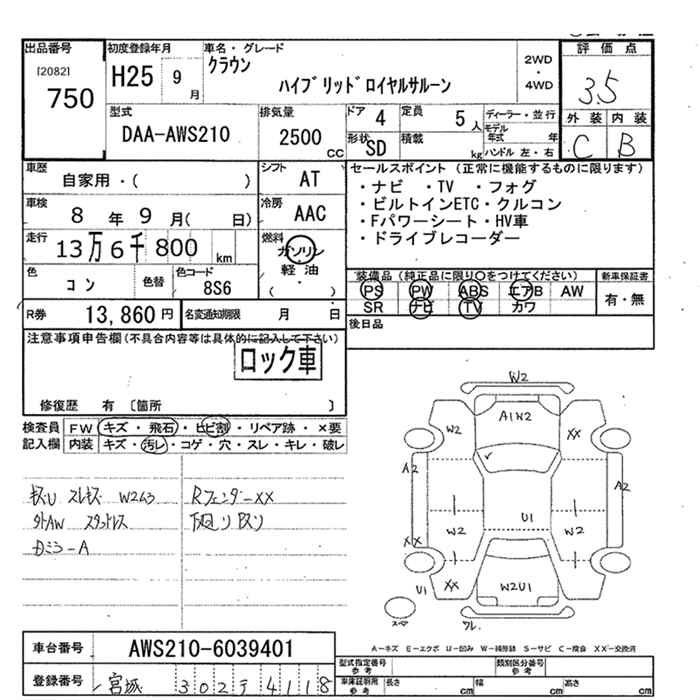 出品番号
[2082]
750
初度登録年月
H25 9 月
車名・グレード
クラウン
ハイブリッド ロイヤルサルーン
2WD
・
4WD
評価点
3.5
外装 内装
C B
型式
DAA-AWS210
排気量
2500 cc
ドア 4
定員 5 人
形状 SD
積載 kg
ディーラー・並行
モデル年式 年
ハンドル 左・右
車歴
自家用・( )
シフト AT
車検
8 年 9 月( 日)
冷房 AAC
走行
13万6千800 km
燃料
ガソリン
軽油
( )
色
コン
色替
色コード
8S6
R券 13,860 円
名変通知期限 月 日
セールスポイント (正常に機能するものに限ります)
・ナビ ・TV ・フォグ
・ビルトインETC・クルコン
・Fパワーシート・HV車
・ドライブレコーダー
装備品(純正品に限り○をつけてください)
PS PW ABS エアB AW
SR ナビ TV カワ
新車保証書
有・無
後日品
注意事項申告欄(不具合内容等は具体的に記入して下さい)
ロック車
修復歴 有 〔箇所 〕
検査員記入欄
FW キズ・飛石・ヒビ割・リペア跡・×要
内装 キズ・汚レ・コゲ・穴・スレ・キレ・破レ
W2 A3
外AW スタットレス
Dミラ-A
Rフェンダ-XX
下廻り
W2
A1W2
W2
XX
A2
A2
U1
W2
W2
XX
U1
XX
W2U1
ワレ
A-キズ E-エクボ U-凹み W-補修跡 S-サビ C-腐食 XX-交換済
車台番号
AWS210-6039401
登録番号
宮城 302 テ 4118
型式指定番号
参考
類別区分番号
参考
車庫証明用
参考
長さ cm
幅 cm
高さ cm